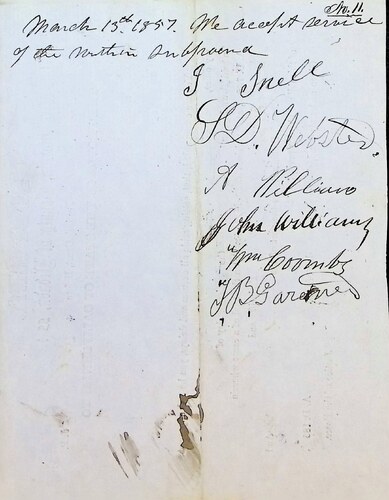 No. 11.
March 13th 1857. We accept service
of the within subpoena
J Snell
S D. Webster.
A Williams
John Williams
Wm Coombs
J B Gardner